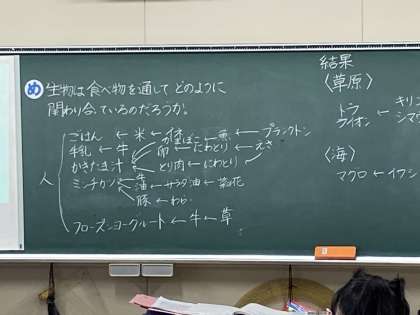 め 生物は食べ物を通してどのように
関わり合っているのだろうか。
人
ごはん ← 米 ← イネ
かまぼこ ← 魚 ← プランクトン
牛乳 ← 牛
卵 ← にわとり ← えさ
かきたま汁
とり肉 ← にわとり
ミンチカツ ← 牛
油 ← サラダ油 ← 菜花
豚 ← わら
フローズンヨーグルート ← 牛 ← 草
結果
〈草原〉
トラ
ライオン ← キリ
シマウ
〈海〉
マグロ ← イワシ